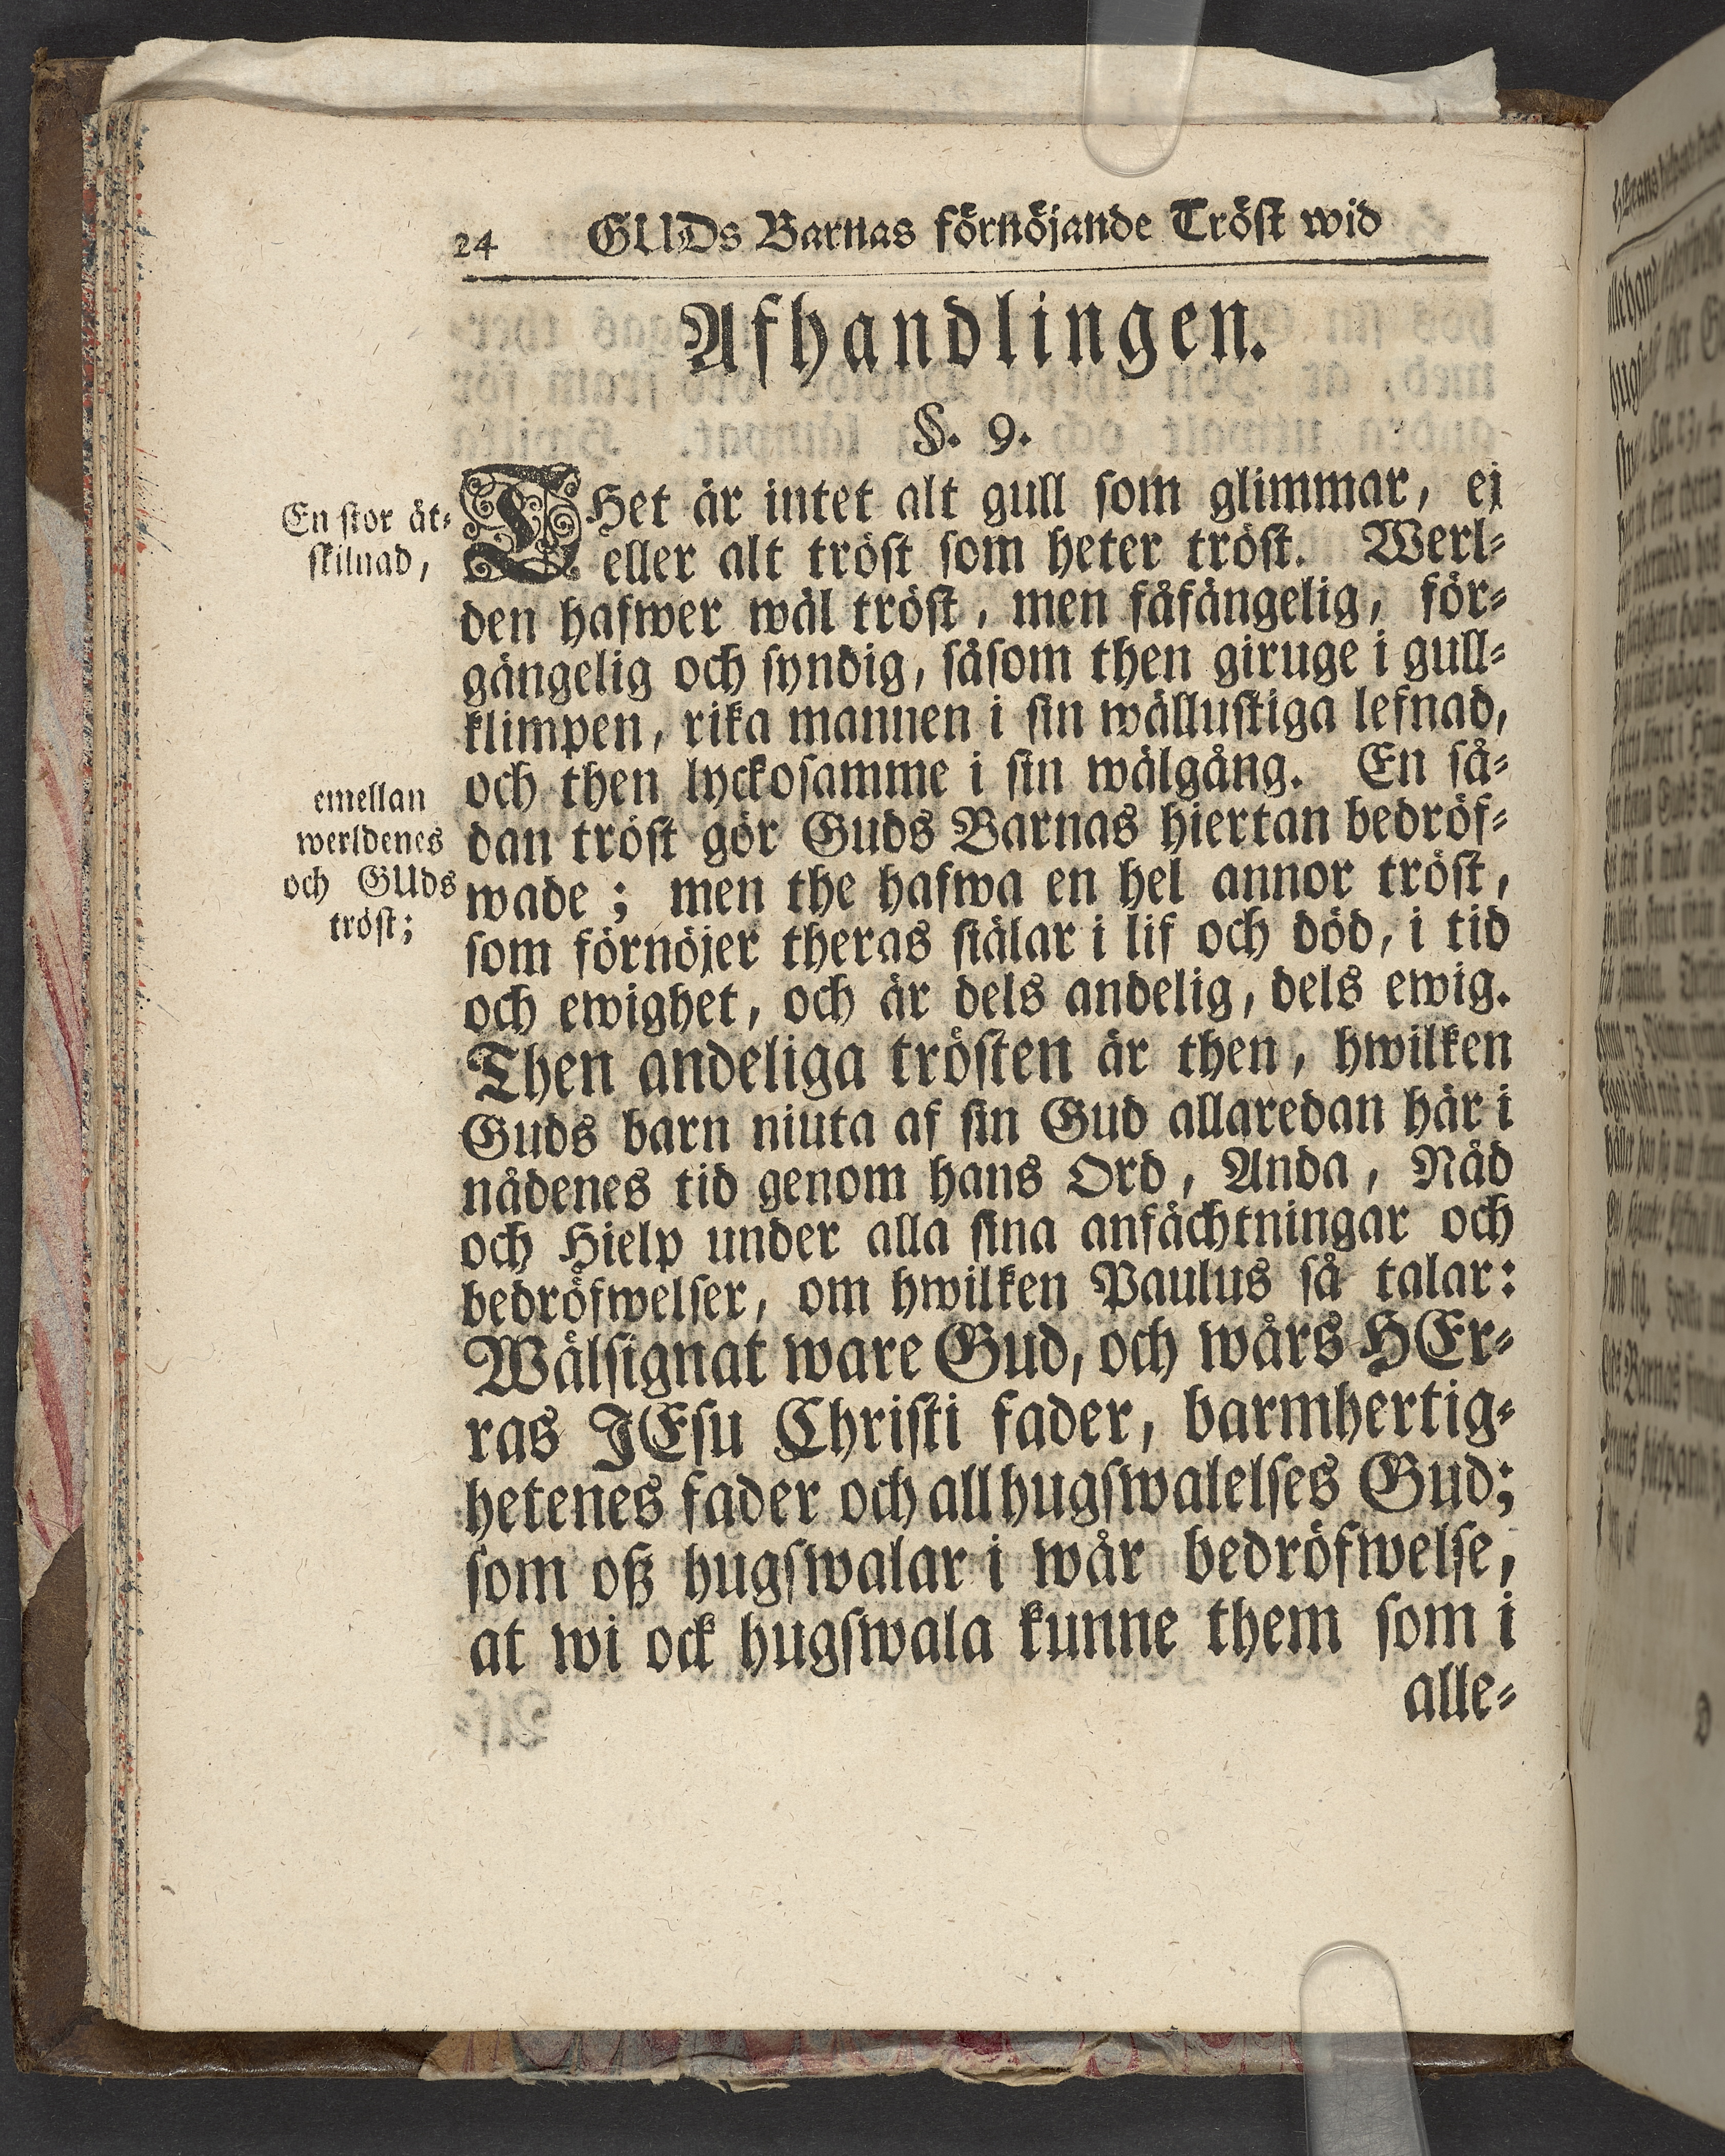 24 GUDs Barnas förnöjande Tröst wid
Afhandlingen.
§. 9.
En stor åt-
skilnad,
THet är intet alt gull som glimmar, ej
eller alt tröst som heter tröst. Werl-
den hafwer wäl tröst, men fåfängelig, för-
gängelig och syndig, såsom then giruge i gull-
klimpen, rika mannen i sin wällustiga lefnad,
och then lyckosamme i sin wälgång. En så-
emellan
werldenes
och GUds
tröst;
dan tröst gör Guds Barnas hiertan bedröf-
wade; men the hafwa en hel annor tröst,
som förnöjer theras siälar i lif och död, i tid
och ewighet, och är dels andelig, dels ewig.
Then andeliga trösten är then, hwilken
Guds barn niuta af sin Gud allaredan här i
nådenes tid genom hans Ord, Anda, Nåd
och Hielp under alla sina anfächtningar och
bedröfwelser, om hwilken Paulus så talar:
Wälsignat ware Gud, och wårs HEr-
ras JEsu Christi fader, barmhertig-
hetenes fader och all hugswalelses Gud;
som oß hugswalar i wår bedröfwelse,
at wi ock hugswala kunne them som i
alle-